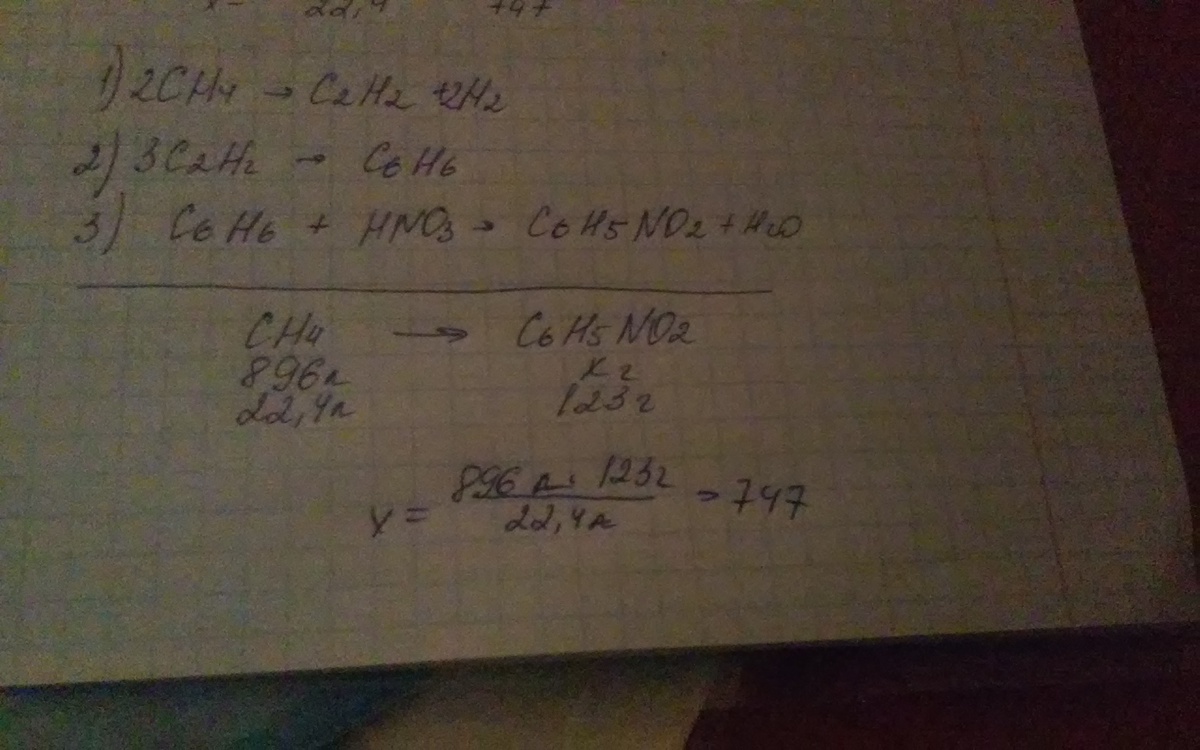 x= 22,4 747
1) 2CH4 → C2H2 + 2H2
2) 3C2H2 → C6H6
3) C6H6 + HNO3 → C6H5NO2 + H2O
CH4 → C6H5NO2
896л xг
22,4л 123г
x = 896л · 123г / 22,4л = 747